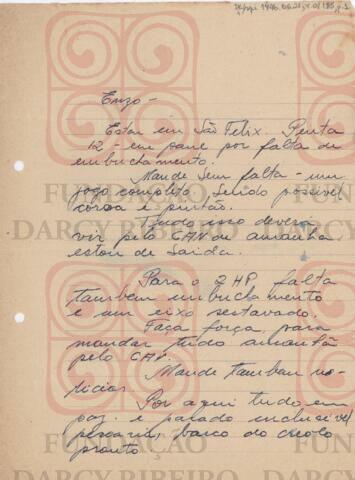 Enzo -
Estou em São Felix. Penta
12 - em pane por falta de
embuchamento.
Mande sem falta - um
jogo completo. Sendo possivel
coroa e pinhão.
Tudo isso deverá
vir pelo CAN ou amanhã
estou de saida.
Para o 2 HP falta
tambem embuchamento
e um eixo sextavado.
Faça força para
mandar tudo amanhã
pelo CAN.
Mande tambem no-
ticias.
Por aqui tudo em
paz. e parado inclusivel
pescaria, barco do
pronto
FUNDAÇÃO
DARCY RIBEIRO
FUNDAÇÃO
DARCY RIBEIRO